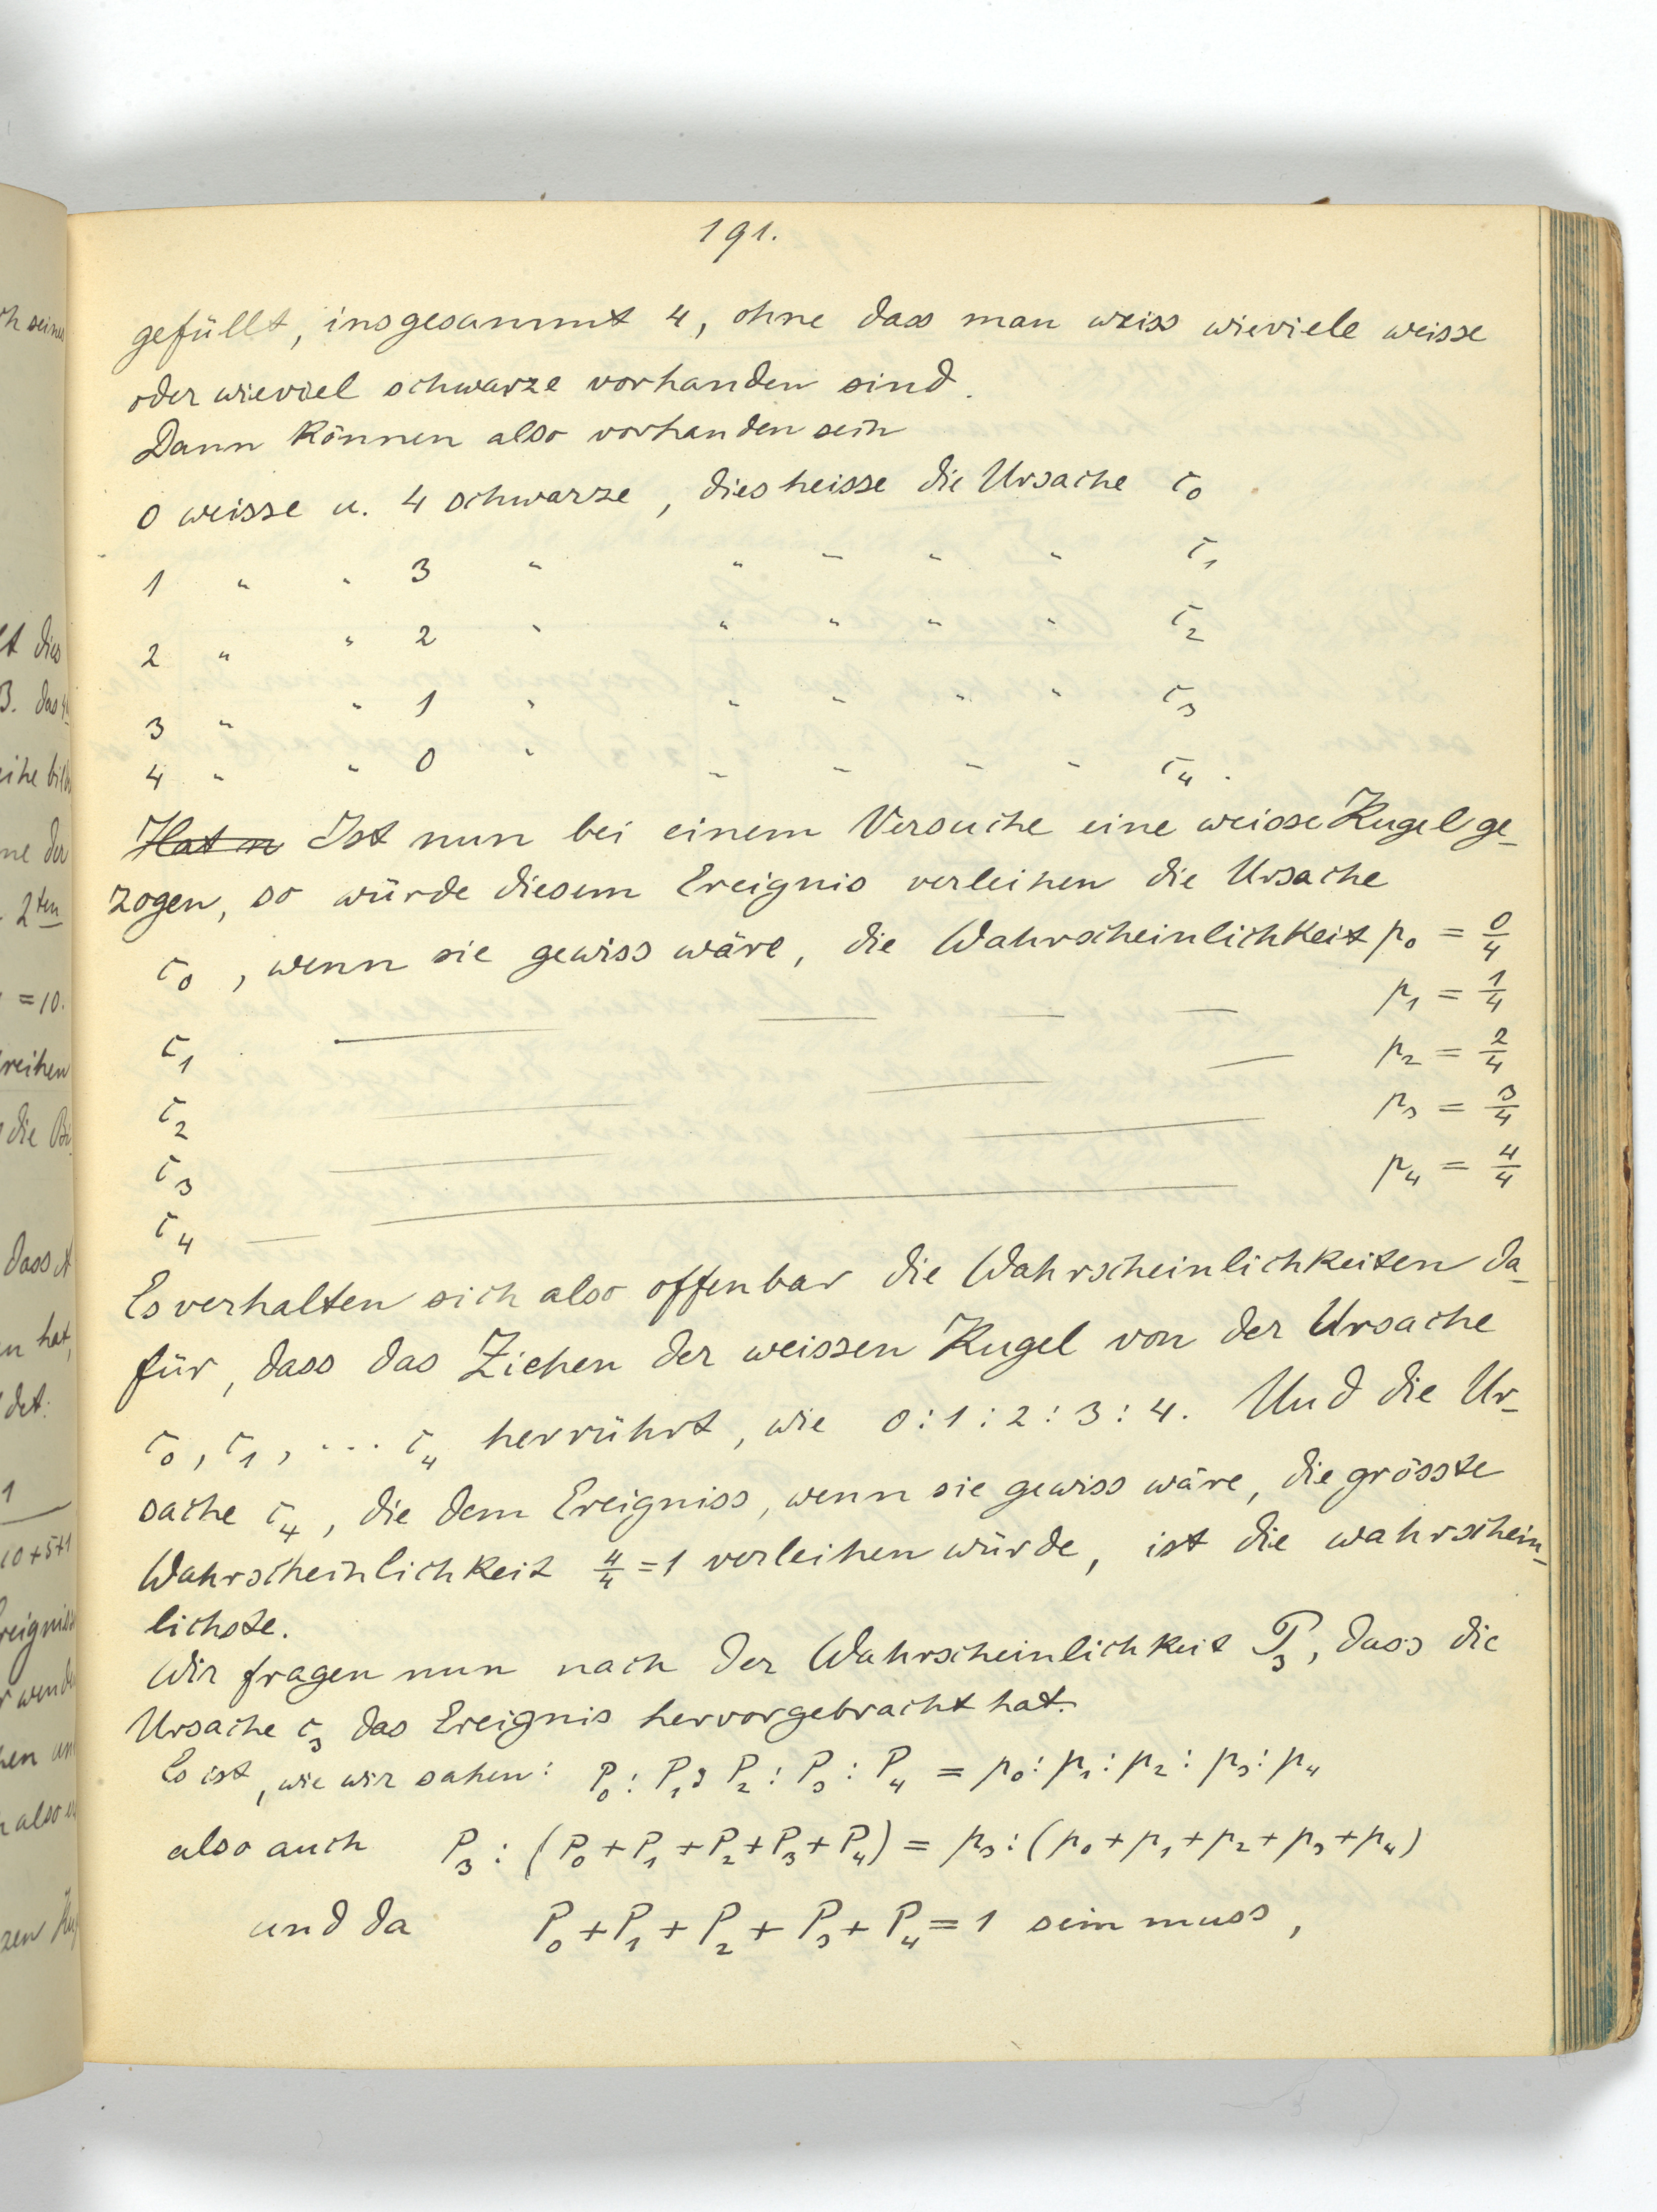 191.
gefüllt, insgesammt 4, ohne dass man weiss wieviele weisse
oder wieviel schwarze vorhanden sind.
Dann können also vorhanden sein
0 weisse u. 4 schwarze, dies heisse die Ursache c₀
1 " " 3 " " " " " c₁
2 " " 2 " " " " " c₂
3 " " 1 " " " " " c₃
4 " " 0 " " " " " c₄.
Hat n Ist nun bei einem Versuche eine weisse Kugel ge-
zogen, so würde diesem Ereignis verleihen die Ursache
c₀, wenn sie gewiss wäre, die Wahrscheinlichkeit p₀ = 0/4
c₁ — — — — p₁ = 1/4
c₂ — — — p₂ = 2/4
c₃ — — p₃ = 3/4
c₄ — — p₄ = 4/4
Es verhalten sich also offenbar die Wahrscheinlichkeiten da-
für, dass das Ziehen der weissen Kugel von der Ursache
c₀, c₁, ... c₄ herrührt, wie 0:1:2:3:4. Und die Ur-
sache c₄, die dem Ereigniss, wenn sie gewiss wäre, die grösste
Wahrscheinlichkeit 4/4 = 1 verleihen würde, ist die wahrschein-
lichste.
Wir fragen nun nach der Wahrscheinlichkeit P₃, dass die
Ursache c₃ das Ereignis hervorgebracht hat.
Es ist, wie wir sahen: P₀ : P₁ : P₂ : P₃ : P₄ = p₀ : p₁ : p₂ : p₃ : p₄
also auch P₃ : (P₀ + P₁ + P₂ + P₃ + P₄) = p₃ : (p₀ + p₁ + p₂ + p₃ + p₄)
und da P₀ + P₁ + P₂ + P₃ + P₄ = 1 sein muss,